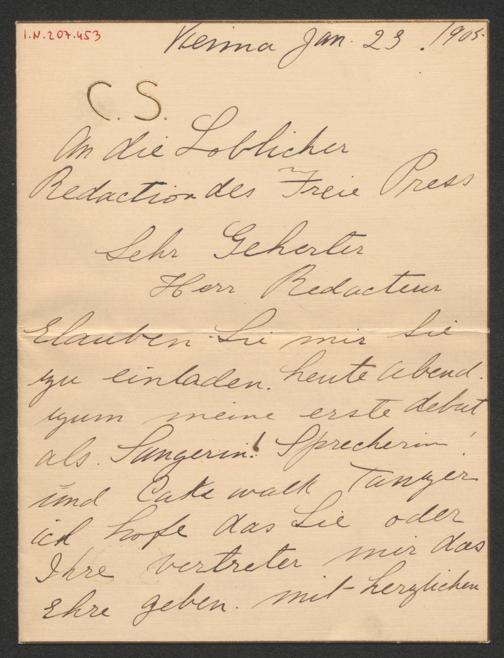 I.N.207.453
Vienna Jan. 23. 1905
C.S.
An die Loblicher
Redaction des Freie Press
Sehr Geherter
Herr Redacteur
Elauben Sie mir Sie
zu einladen. heute abend.
zum meine erste debut
als. Sangerin! Sprecherin!
und Cake walk Tanzer
ich hofe das Sie oder
Ihre vertreter mir das
Ehre geben. mit herzlichen